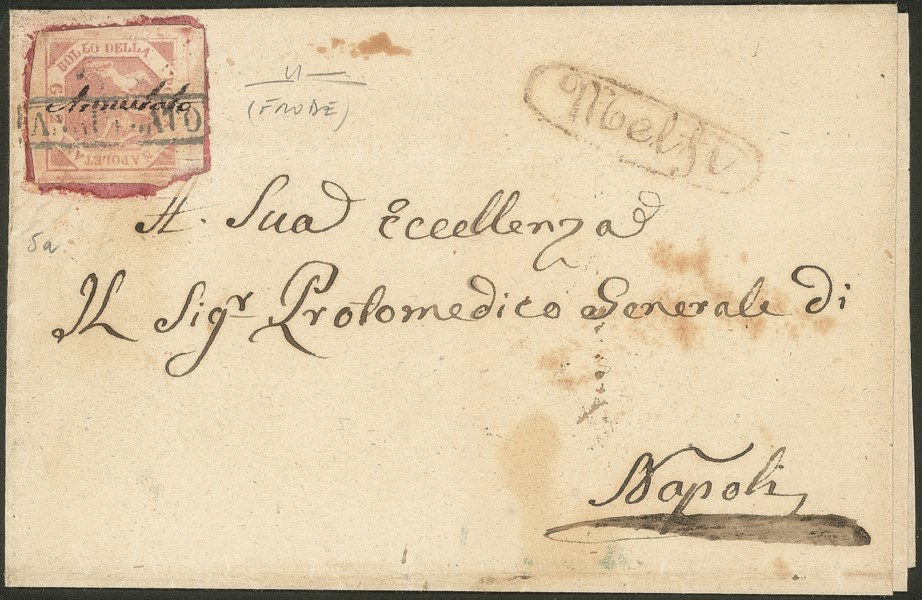 BOLLO DELLA
NAPOLETA
Annullato
ANNULLATO
(FRODE)
Melfi
5a.
A. Sua Eccellenza
Il Sigr Protomedico Generale di
Napoli